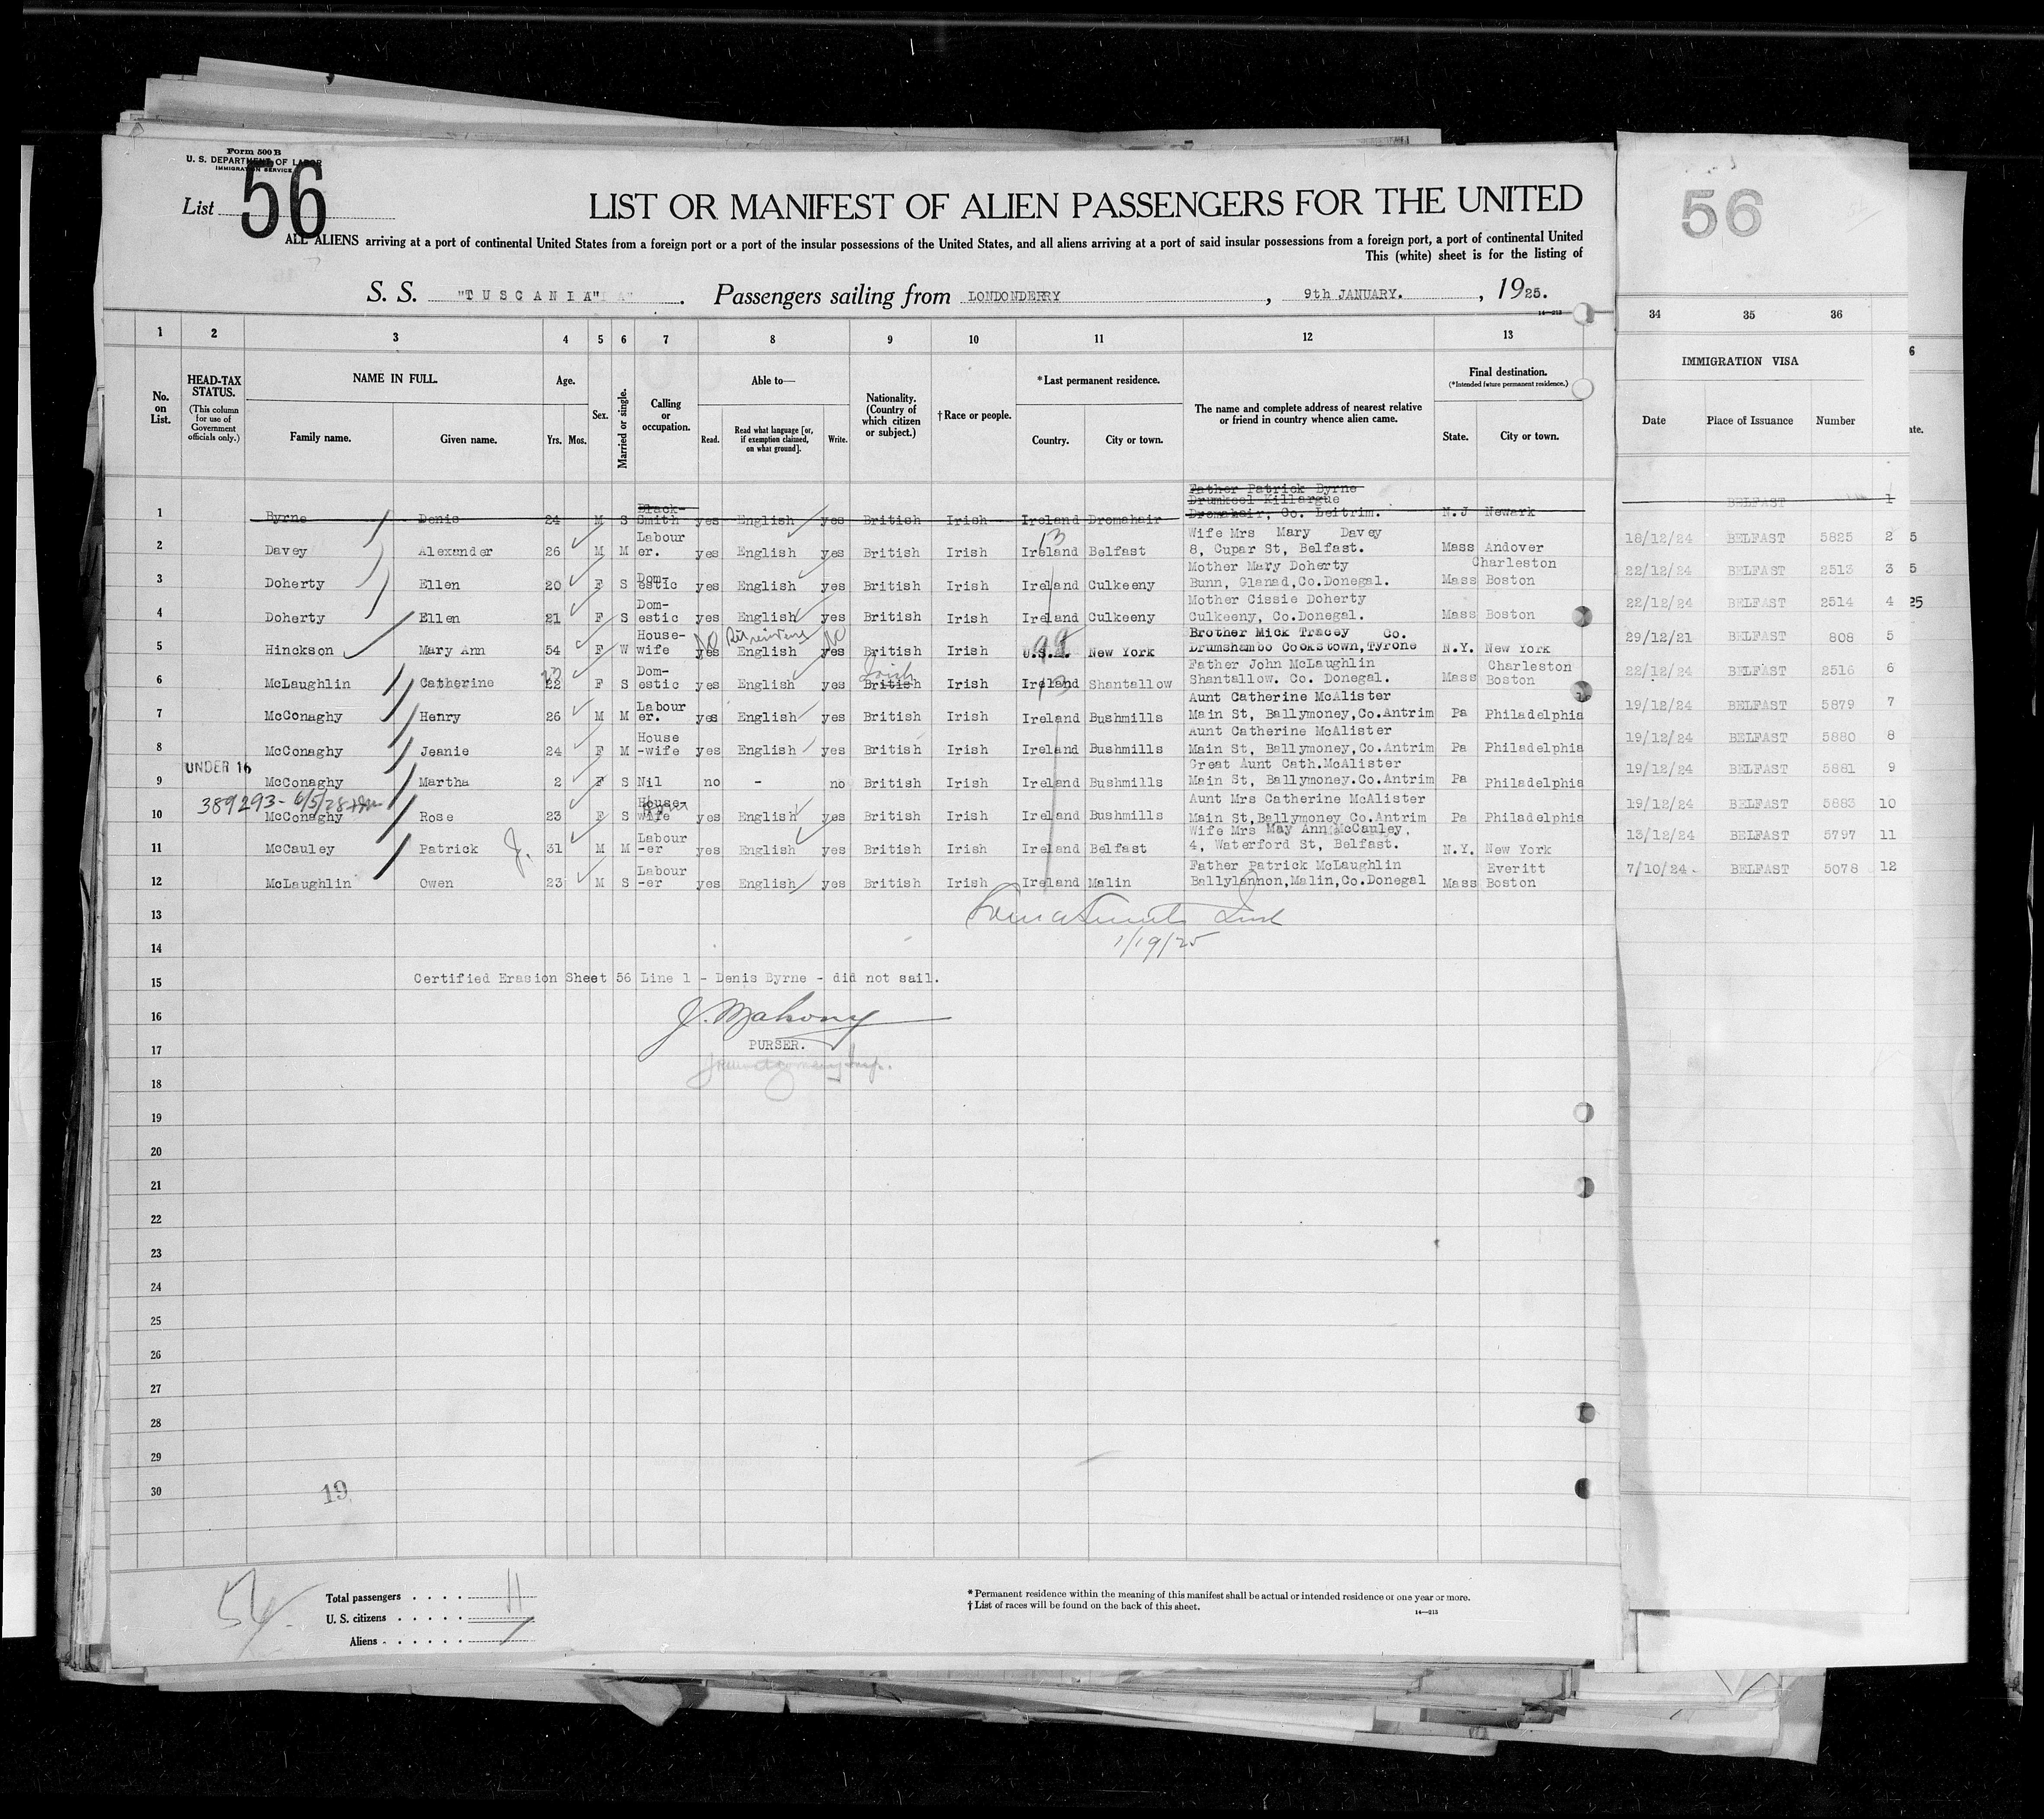 Form 500 B
U. S. DEPARTMENT OF LABOR
IMMIGRATION SERVICE
List 56
LIST OR MANIFEST OF ALIEN PASSENGERS FOR THE UNITED
ALL ALIENS arriving at a port of continental United States from a foreign port or a port of the insular possessions of the United States, and all aliens arriving at a port of said insular possessions from a foreign port, a port of continental United
This (white) sheet is for the listing of
S. S. "TUSCANIA" . Passengers sailing from LONDONDERRY , 9th JANUARY. , 1925.
14—213
1 2 3 4 5 6 7 8 9 10 11 12 13
No. on List.
HEAD-TAX STATUS.
(This column for use of Government officials only.)
NAME IN FULL.
Family name. Given name.
Age.
Yrs. Mos.
Sex.
Married or single.
Calling or occupation.
Able to—
Read. Read what language [or, if exemption claimed, on what ground]. Write.
Nationality. (Country of which citizen or subject.)
† Race or people.
*Last permanent residence.
Country. City or town.
The name and complete address of nearest relative or friend in country whence alien came.
Final destination.
(*Intended future permanent residence.)
State. City or town.
56
34 35 36
IMMIGRATION VISA
Date Place of Issuance Number
1 Byrne Denis 24 M S Black-Smith yes English yes British Irish Ireland Dromahair Father Patrick Byrne Drumkeel Killargue Dromahair, Co. Leitrim. N.J Newark BELFAST 1
2 Davey Alexander 26 M M Labour er. yes English yes British Irish Ireland 13 Belfast Wife Mrs Mary Davey 8, Cupar St, Belfast. Mass Andover 18/12/24 BELFAST 5825 2
3 Doherty Ellen 20 F S Dom-estic yes English yes British Irish Ireland Culkeeny Mother Mary Doherty Bunn, Glanad,Co.Donegal. Mass Charleston Boston 22/12/24 BELFAST 2513 3
4 Doherty Ellen 21 F S Dom-estic yes English yes British Irish Ireland Culkeeny Mother Cissie Doherty Culkeeny, Co.Donegal. Mass Boston 22/12/24 BELFAST 2514 4
5 Hinckson Mary Ann 54 F W House-wife yes No English yes No British Irish U.S.A. 99 New York Brother Mick Tracey Co. Drumshambo Cookstown,Tyrone N.Y. New York 29/12/21 BELFAST 808 5
6 McLaughlin Catherine 22 F S Dom-estic yes English yes British Irish Irish Ireland 13 Shantallow Father John McLaughlin Shantallow. Co. Donegal. Mass Charleston Boston 22/12/24 BELFAST 2516 6
7 McConaghy Henry 26 M M Labour er. yes English yes British Irish Ireland Bushmills Aunt Catherine McAlister Main St, Ballymoney,Co.Antrim Pa Philadelphia 19/12/24 BELFAST 5879 7
8 McConaghy Jeanie 24 F M House -wife yes English yes British Irish Ireland Bushmills Aunt Catherine McAlister Main St, Ballymoney,Co.Antrim Pa Philadelphia 19/12/24 BELFAST 5880 8
9 UNDER 16 McConaghy Martha 2 F S Nil no - no British Irish Ireland Bushmills Great Aunt Cath.McAlister Main St, Ballymoney.Co.Antrim Pa Philadelphia 19/12/24 BELFAST 5881 9
389293 - 6/5/28
10 McConaghy Rose 23 F S House-wife yes English yes British Irish Ireland Bushmills Aunt Mrs Catherine McAlister Main St,Ballymoney Co.Antrim Pa Philadelphia 19/12/24 BELFAST 5883 10
11 McCauley Patrick J. 31 M M Labour -er yes English yes British Irish Ireland Belfast Wife Mrs May Ann McCauley, 4, Waterford St, Belfast. N.Y. New York 13/12/24 BELFAST 5797 11
12 McLaughlin Owen 23 M S Labour -er yes English yes British Irish Ireland Malin Father Patrick McLaughlin Ballylannon,Malin,Co.Donegal Mass Everitt Boston 7/10/24 BELFAST 5078 12
13
1/19/25
14
15 Certified Erasion Sheet 56 Line 1 - Denis Byrne - did not sail.
16 J. Mahony
17 PURSER.
18
19
20
21
22
23
24
25
26
27
28
29
30
19
Total passengers . . . . 11
U. S. citizens . . . . .
Aliens . . . . . .
* Permanent residence within the meaning of this manifest shall be actual or intended residence of one year or more.
† List of races will be found on the back of this sheet.
14—213